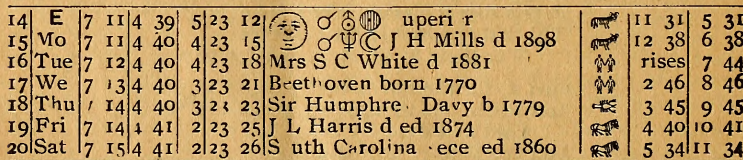 14 E 7 11 4 39 5 23 12 uperi r 11 31 5 31
15 Mo 7 11 4 40 4 23 15 J H Mills d 1898 12 38 6 38
16 Tue 7 12 4 40 4 23 18 Mrs S C White d 1881 rises 7 44
17 We 7 13 4 40 3 23 21 Beethoven born 1770 2 46 8 46
18 Thu 7 14 4 40 3 23 23 Sir Humphre Davy b 1779 3 45 9 45
19 Fri 7 14 4 41 2 23 25 J L Harris d ed 1874 4 40 10 41
20 Sat 7 15 4 41 2 23 26 S uth Carolina ece ed 1860 5 34 11 34